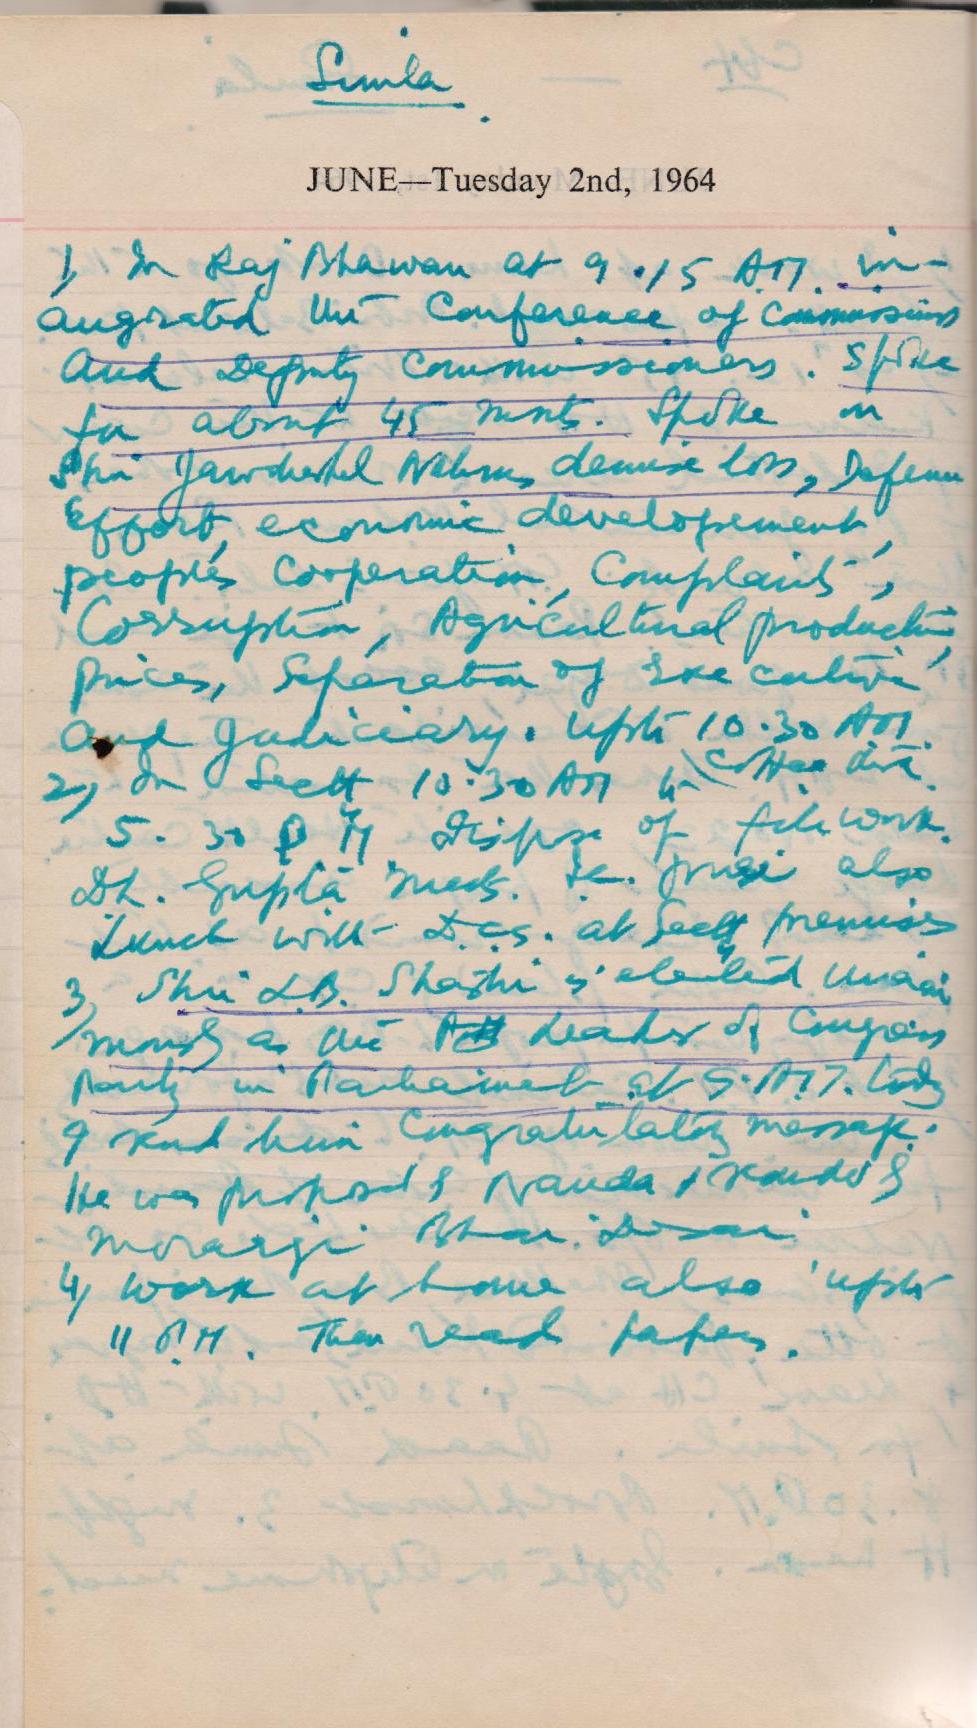 Simla
JUNE—Tuesday 2nd, 1964
1, In Raj Bhawan at 9.15 A.M. in-
augrated the Conference of Commissioners
and Deputy Commissioners. Spoke
for about 45 mnts. Spoke on
Shri Jawaharlal Nehru, demise loss, Defence
Effort, economic developement,
peoples cooperation, Complaints,
Corruption, Agricultural production,
prices, Separation of Executive
and Judiciary. upto 10.30 AM.
2, In Sectt 10.30 AM to Coffee
5.30 P.M. Dispose of file work.
Gupta meets. also
Lunch with D.Cs. at Sectt premises
3, Shri L.B. Shastri is elected unani
mously as the Leader of Congress
Party in Parliament at 9. A.M. today
I send him Congratulatory message.
He was proposed by Nanda & seconded by
Morarji Bhai Desai
4, Work at home also upto
11 P.M. Then read papers.